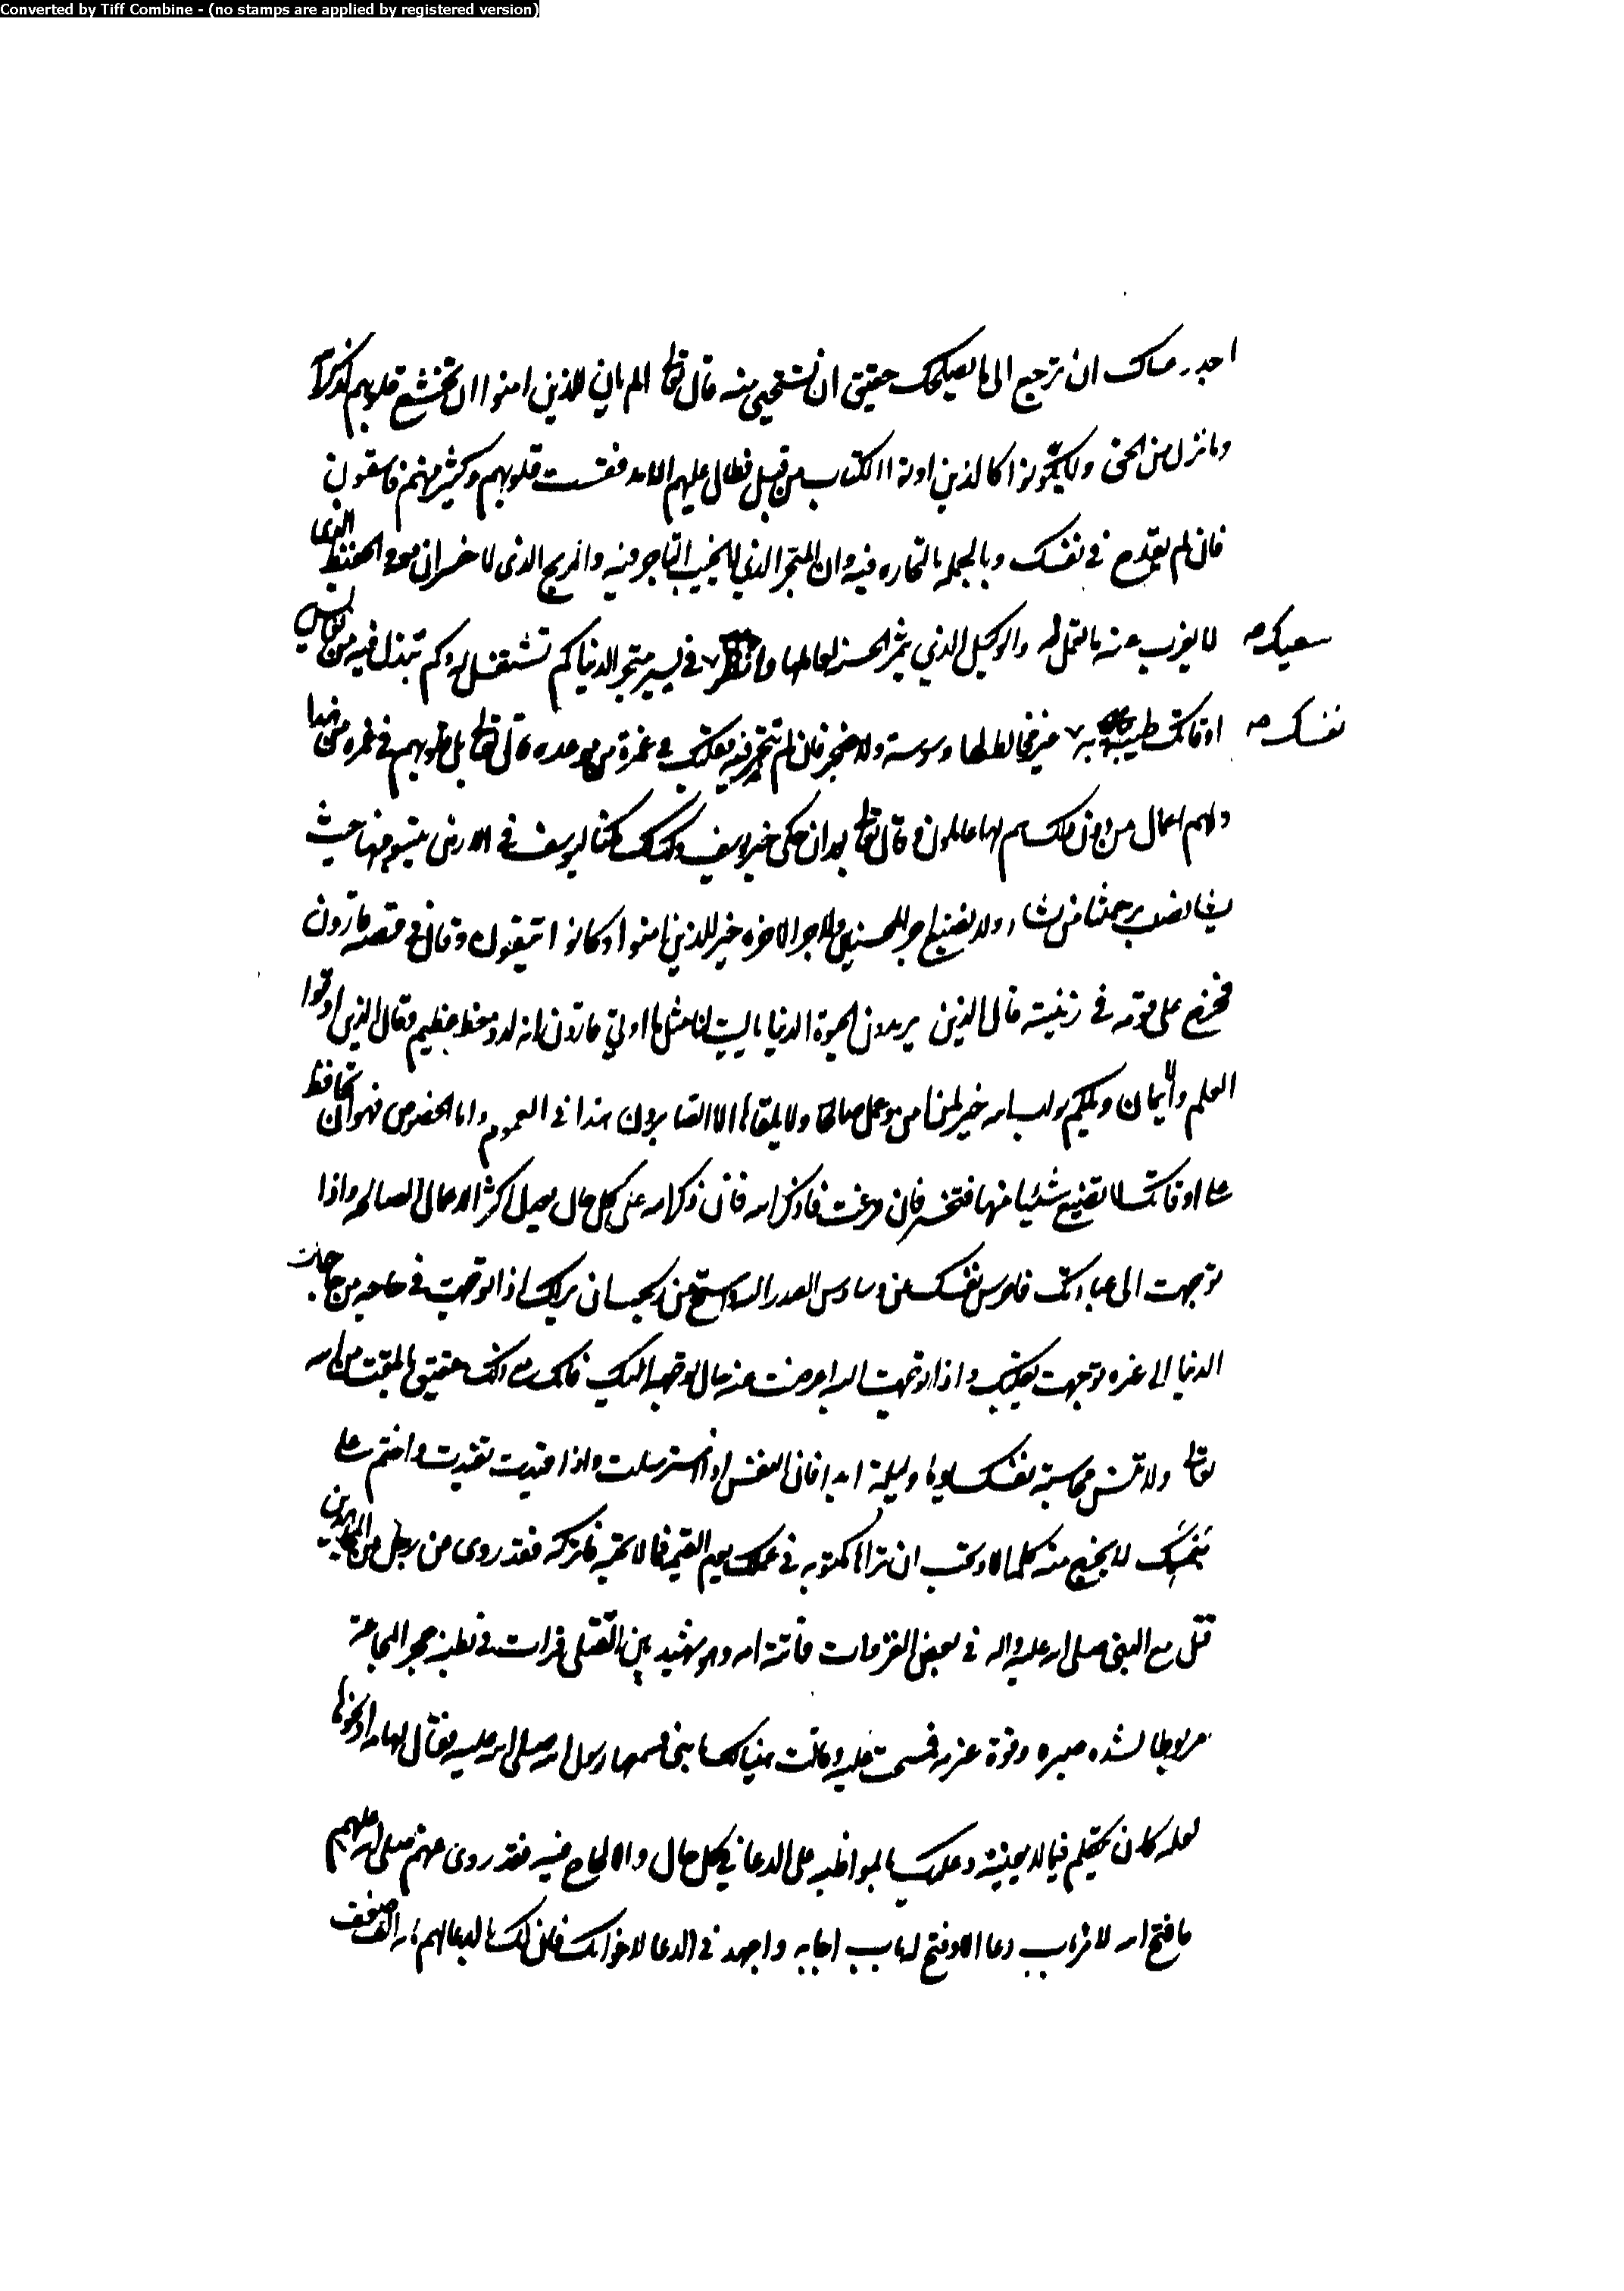 Converted by Tiff Combine - (no stamps are applied by registered version)
ان ترجع الى ما يصلحك حقيق ان تستحيى منه قال تعا الم يان للذين امنوا ان تخشع قلوبهم لذكر الله
وما نزل من الحق ولا يكونوا كالذين اوتوا الكتاب من قبل فطال عليهم الامد فقست قلوبهم وكثير منهم فاسقون
فان لم يقدح في نفسك وبالجملة بالتجاره فيه وان المتجر الذي لا يخيب التاجر فيه والربح الذى لا خسران معه والحفيظ الذى
سعيك صه
لا يعزب عنه ما تعمل له والوكيل الذي يثمر الحسن لعاملها وانظر في يسير متجر الدنيا كم تشتغل له وكم تبذل فيه من نفايس
نفسك صه
اوقاتك طيبة به غير مخالطها وسوسة ولا ضجر فان لم تتجر فيه بقلبك في غمرة من موعده قال تعا بل قلوبهم في غمره من هذا
ولهم اعمال من دون ذلك هم لها عاملون وقال تعا بعد ان حكى خبر يوسف وكذلك مكنا ليوسف في الارض يتبوء منها حيث
يشا نصيب برحمتنا من نشاء ولا نضيع اجر المحسنين ولاجر الاخره خير للذين امنوا وكانوا يتقون وقال في قصة قارون
فخرج على قومه في زينته قال الذين يريدون الحيوة الدنيا ياليت لنا مثل ما اوتي قارون انه لذو حظ عظيم وقال الذين اوتوا
العلم والايمان ويلكم ثواب الله خير لمن امن وعمل صالحا ولا يلقاها الا الصابرون هذا في العموم واما الخصوص فهو ان تحافظ
على اوقاتك لا تضيع شيئا منها فتخسر فان فرغت فاذكر الله فان ذكر الله على كل حال يعدل اكثر الاعمال الصالحه واذا
توجهت الى عبادتك فاحرس نفسك من وساوس الصدر اذا توجهت في حاجه من حاجات
الدنيا الى غره توجهت بقلبك واذا توجهت اليه اعرضت عنه حال توجهه اليك فانك مع ذلك حقيق بالمقت من الله
تعا ولا تنس محاسبة نفسك يوما وليلة ابدا فان النفس اذا استرسلت واذا قيدت تقيدت واختم على
فمك لا يخرج منه كلما الا وتحب ان تراها مكتوبه في عملك يوم القيمه فما لا تحبه فاتركه فقد روى من رجل من المجاهدين
قتل مع النبى صلى الله عليه واله في بعض الغزوات فاتته امه وهو شهيد بين القتلى فرات في بطنه حجر المجاعة
مربوطا لشده صبره وقوة عزمه فمسحت عليه وقالت هنيا لك يا بنى فسمعها رسول الله صلى الله عليه فقال لها مه او نحوها
لعله كان يتكلم فيما لا يعنيه وعليك بالمواظبه على الدعا في كل حال والالحاح فيه فقد روى عنهم صلى الله عليهم
ما فتح الله لا باب دعا الا وفتح له باب اجابه واجهد في الدعا لاخوانك فان لك بالدعا لهم مائه الف ضعف